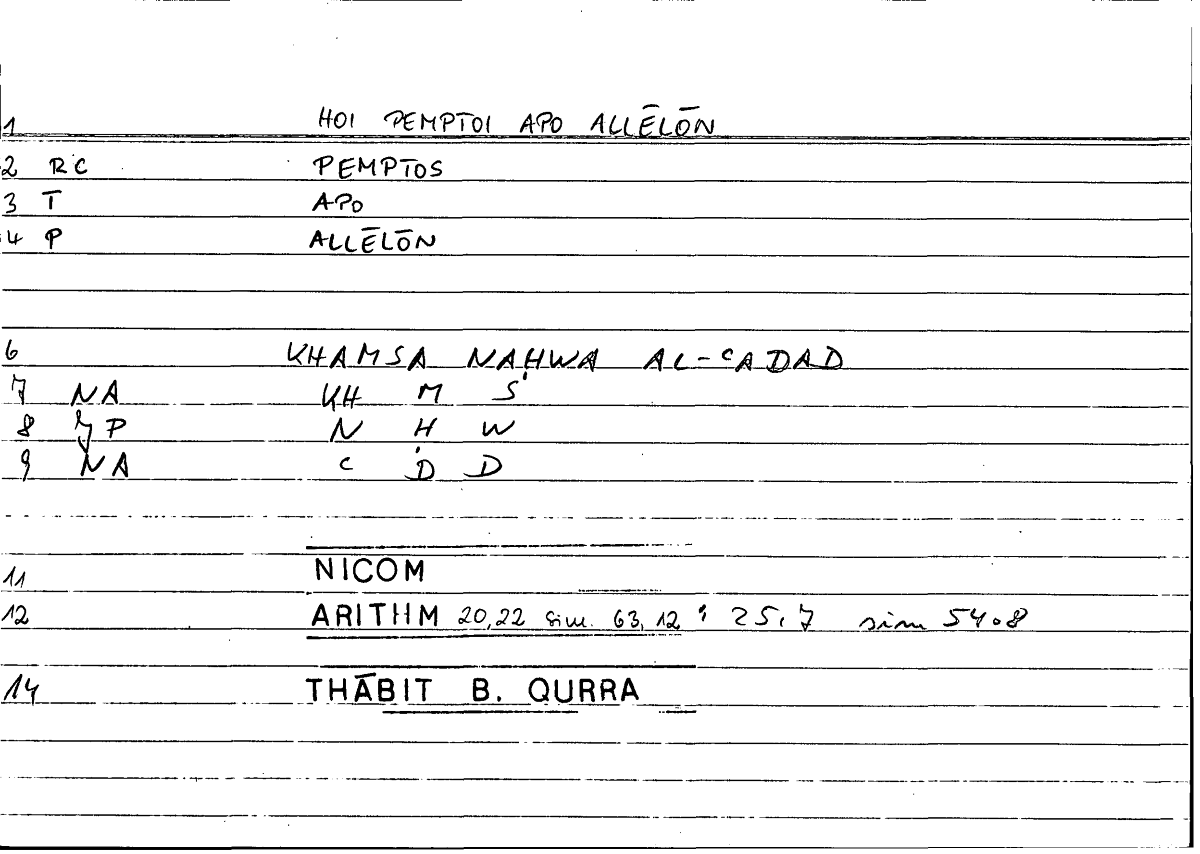 1 HOI PEMPTOI APO ALLĒLŌN
2 RC PEMPTOS
3 T APO
4 P ALLĒLŌN
6 KHAMSA NAḤWA AL-CADAD
7 NA KH M S
8 P N Ḥ W
9 NA C D D
11 NICOM
12 ARITHM 20,22 sim. 63,12 : 25,7 sim 54.8
14 THĀBIT B. QURRA